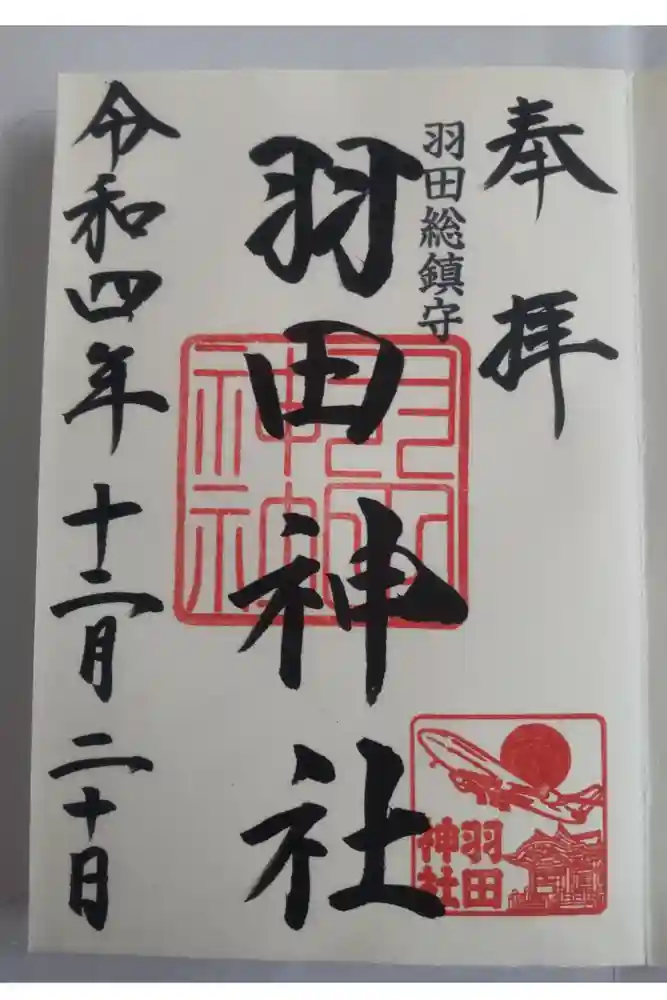 奉拝
羽田総鎮守
羽田神社
羽田
神社
令和四年十二月二十日
羽田
神社